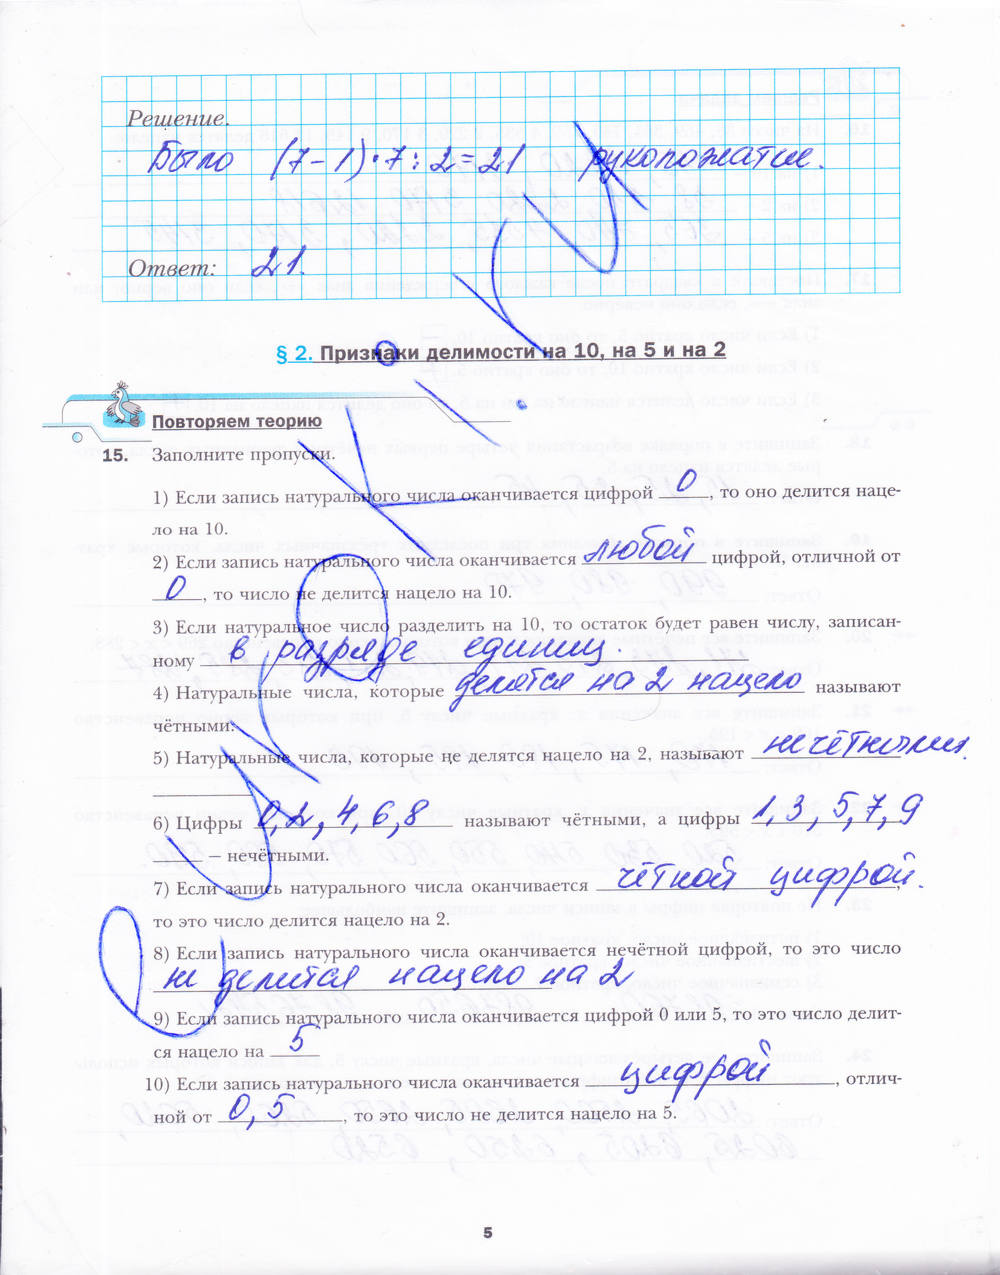 Решение.
Было (7-1)·7:2=21 рукопожатие.
Ответ: 21.
§ 2. Признаки делимости на 10, на 5 и на 2
Повторяем теорию
15. Заполните пропуски.
1) Если запись натурального числа оканчивается цифрой 0, то оно делится наце-
ло на 10.
2) Если запись натурального числа оканчивается любой цифрой, отличной от
0, то число не делится нацело на 10.
3) Если натуральное число разделить на 10, то остаток будет равен числу, записан-
ному в разряде единиц.
4) Натуральные числа, которые делятся на 2 нацело называют
чётными.
5) Натуральные числа, которые не делятся нацело на 2, называют нечётными.
6) Цифры 0,2,4,6,8 называют чётными, а цифры 1,3,5,7,9
– нечётными.
7) Если запись натурального числа оканчивается чётной цифрой.,
то это число делится нацело на 2.
8) Если запись натурального числа оканчивается нечётной цифрой, то это число
не делится нацело на 2
9) Если запись натурального числа оканчивается цифрой 0 или 5, то это число делит-
ся нацело на 5
10) Если запись натурального числа оканчивается цифрой, отлич-
ной от 0,5, то это число не делится нацело на 5.
5